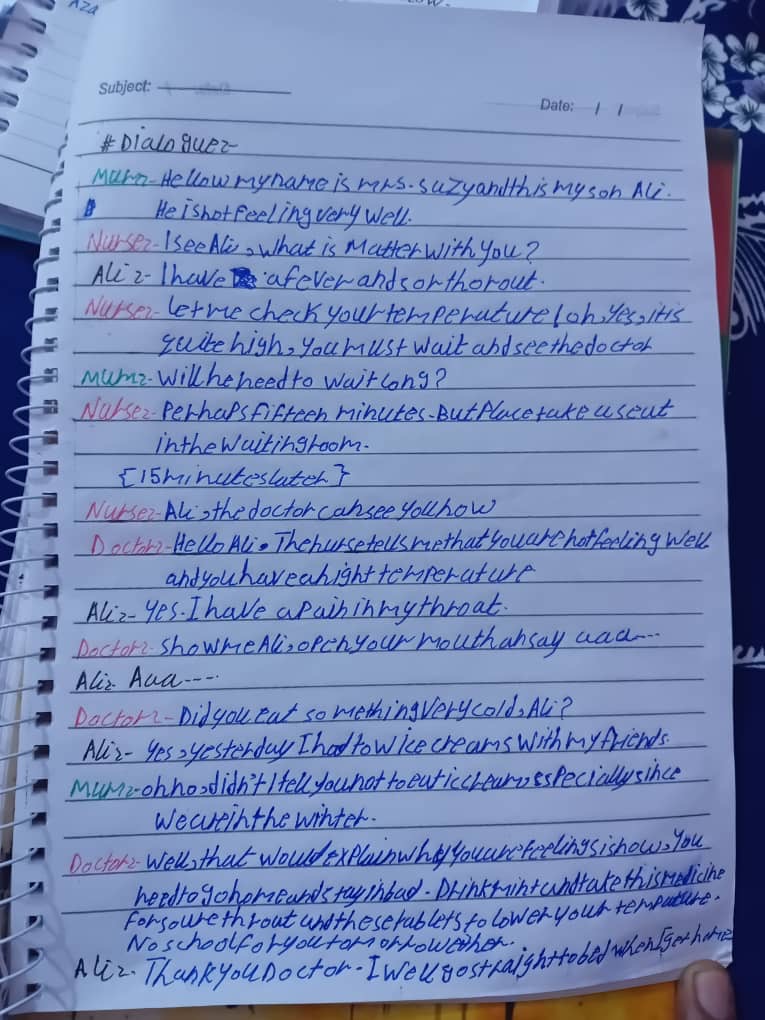 AZA
Subject:
Date: / /
# Dialogue:-
Mum:- Hellow my name is mrs. suzy and this my son Ali.
He is not feeling very well.
Nurse:- I see Ali, what is Matter with you?
Ali:- I have a fever and sor thorout.
Nurse:- let me check your temperature! oh, yes, it is
quite high, you must wait and see the doctor
Mum:- Will he need to wait long?
Nurse:- Perhaps fifteen minutes. But Place take a seat
in the waiting room.
{15 minutes later}
Nurse:- Ali, the doctor can see you now
Doctor:- Hello Ali. The nurse tells me that you are not feeling well
and you have a hight temperature
Ali:- Yes. I have a pain in my throat.
Doctor:- Show me Ali, open your mouth an say aaa---
Ali:- Aaa----
Doctor:- Did you eat something very cold, Ali?
Ali:- Yes, yesterday I had tow ice creams with my friends.
Mum:- oh no, didn't I tell you not to eat ic cream, especially since
we are in the winter.
Doctor:- Well, that would explain why you are feeling si now, You
need to go home and stay in bad. Drink mint and take this medicine
for soure throut and these tablets to lower your tempature.
No school for you tomorrow ether.
Ali:- Thank you Doctor. I well go straight to bed when I get home